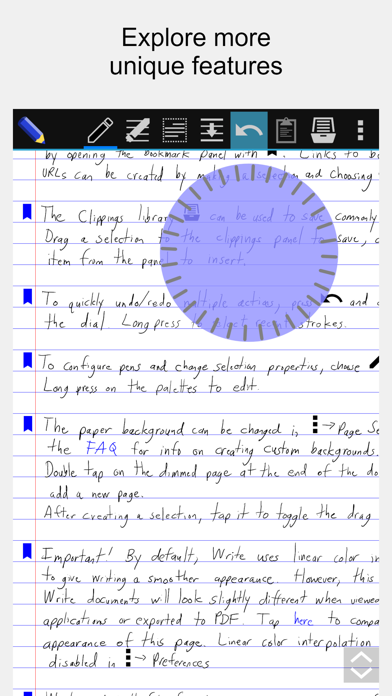 Explore more
unique features
by opening the bookmark panel with . Links to b
URLs can be created by making a selection and choosing
The Clippings library can be used to save commonly
Drag a selection to the clippings panel to save,
item from the panel to insert.
To quickly undo/redo multiple actions, press and
the dial Long press to select recent strokes.
To configure pens and change selection properties, choose
Long press on the palettes to edit.
The paper background can be changed in → Page Se
the FAQ for info on creating custom backgrounds.
Double tap on the dimmed page at the end of the do
add a new page.
After creating a selection, tap it to toggle the drag
Important! By default, Write uses linear color in
to give writing a smoother appearance. However, this
Write documents will look slightly different when viewed
applications or exported to PDF. Tap here to compa
appearance of this page. Linear color interpolation
disabled in → Preferences